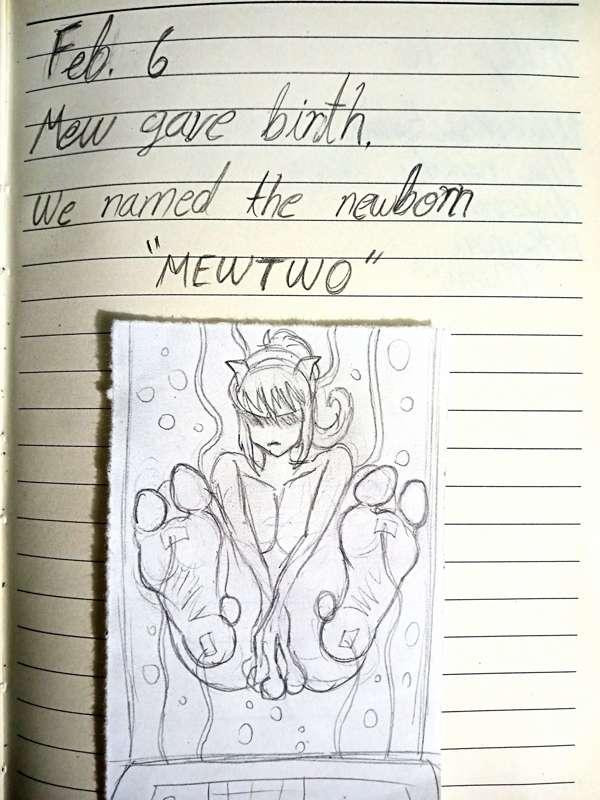 Feb. 6
Mew gave birth.
We named the newborn
"MEWTWO"